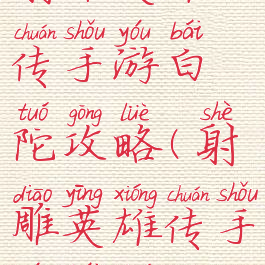 chuán shǒu yóu bái
传手游白
tuó gōng lüè shè
陀攻略(射
diāo yīng xióng chuán shǒu
雕英雄传手